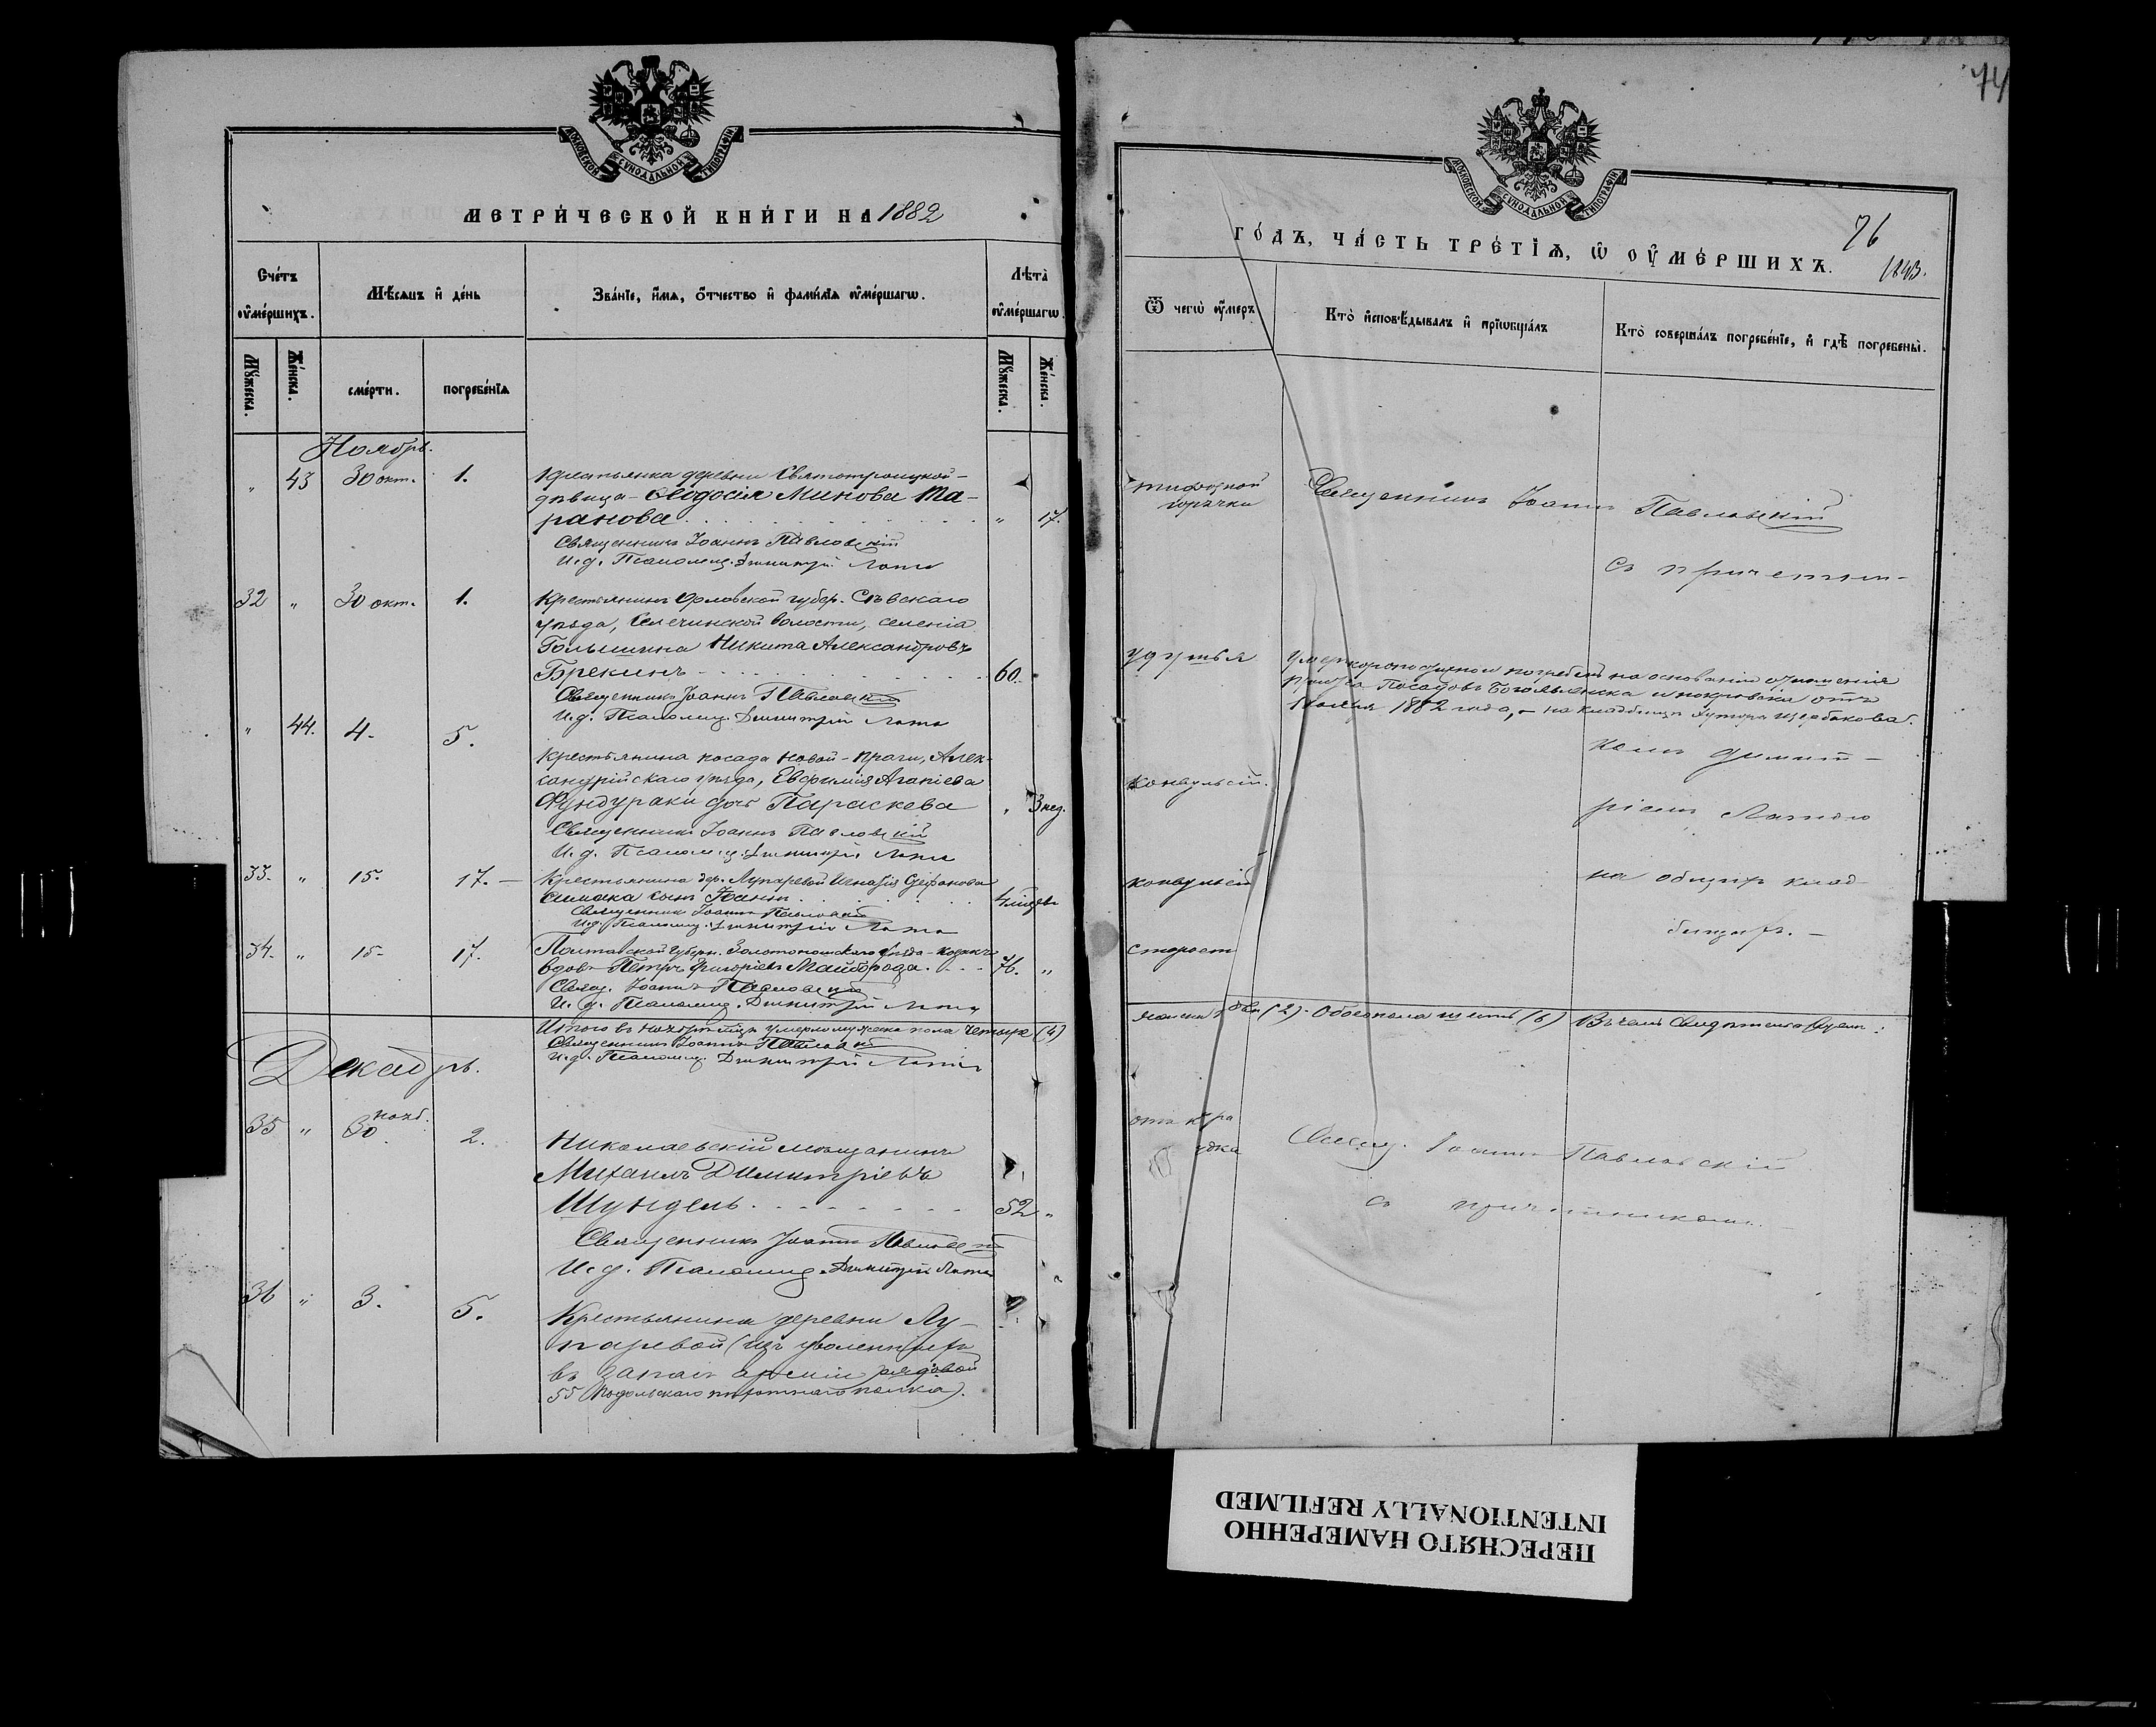 МОСКОВСКОЙ СѴНОДАЛЬНОЙ ТѴПОГРАФІИ
МЕТРИ́ЧЕСКОЙ КНИ́ГИ НА 1882
Сче́тъ ᲂу҆ме́ршихъ.
Мѣ́сяцъ и҆ де́нь
Зва́нїе, и҆́мѧ, ѻ҆́тчество и҆ фами́лїѧ ᲂу҆ме́ршагѡ.
Лѣта̀ ᲂу҆ме́ршагѡ.
Мꙋ́жеска.
Же́нска.
сме́рти.
погребе́нїѧ
Мꙋ́жеска.
Же́нска.
Ноябрь.
" 43 30 окт. 1. Крестьянка деревни Святотроицкой-
дѣвица - Ѳеодосія Минова Та-
ранова " 17.
Священникъ Іоаннъ Павловскій
И. д. Псаломщ. Димитрій
32 " 30 окт. 1. Крестьянинъ Орловской губер. Сѣвскаго
уѣзда, волости, селенія
Никита Александровъ
Брекинъ 60.
Священникъ Іоаннъ Павловскій
И. д. Псаломщ. Димитрій
" 44. 4. 5.
Крестьянина посада Новой-Праги, Алек-
сандрійскаго уѣзда, Евфимія Агапіева
Фундураки дочь Параскева " 3 нед.
Священникъ Іоаннъ Павловскій
И. д. Псаломщ. Димитрій
33. " 15. 17. Крестьянина дер. Лупаревой Игнатія
сынъ Іоаннъ 4
Священникъ Іоаннъ Павловскій
И. д. Псаломщ. Димитрій
34. " 15. 17. Полтавской губерн. Золотоношскаго уѣзда - козакъ
вдовъ Петръ Григоріевъ Майборода 76. "
Свящ. Іоаннъ Павловскій
И. д. Псаломщ. Димитрій
Итого въ Ноябрѣ мцѣ умерло мужеска пола четыре (4)
Священникъ Іоаннъ Павловскій
И. д. Псаломщ. Димитрій
Декабрь.
35 " 30 нояб. 2. Николаевскій мѣщанинъ
Михаилъ Димитріевъ
Шундель 52 "
Священникъ Іоаннъ Павловскій
И. д. Псаломщ. Димитрій
36 " 3. 5. Крестьянина деревни Лу-
паревой (изъ уволенныхъ
въ запасъ арміи рядовой
55 Подольскаго пѣхотнаго полка).
74
МОСКОВСКОЙ СѴНОДАЛЬНОЙ ТѴПОГРАФІИ
76
ГО́ДЪ, ЧА́СТЬ ТРЕ́ТЇѦ, Ѡ҆ ОУ҆МЕ́РШИХЪ.
1843.
Ѿ чегѡ̀ ᲂу҆́меръ
Кто̀ и҆сповѣ́дывалъ и҆ прїѡбща́лъ
Кто̀ соверша́лъ погребе́нїе, и҆ гдѣ̀ погребены̀.
тифозной
горячки
Священникъ Іоаннъ Павловскій
съ причетни-
удушья
на основаніи отношенія
Посадовъ Богоявленска и Покровска отъ
1882 года, - на кладбищѣ хутора Щербакова.
комъ Димит-
конвульсій.
ріемъ
конвульсій
на общемъ клад-
бищѣ. -
старости
женска два (2). Обоего пола шесть (6) Въ чемъ свидѣтельствуемъ:
Свящ. Іоаннъ Павловскій
съ причетникомъ
ПЕРЕСНЯТО НАМЕРЕННО
INTENTIONALLY REFILMED